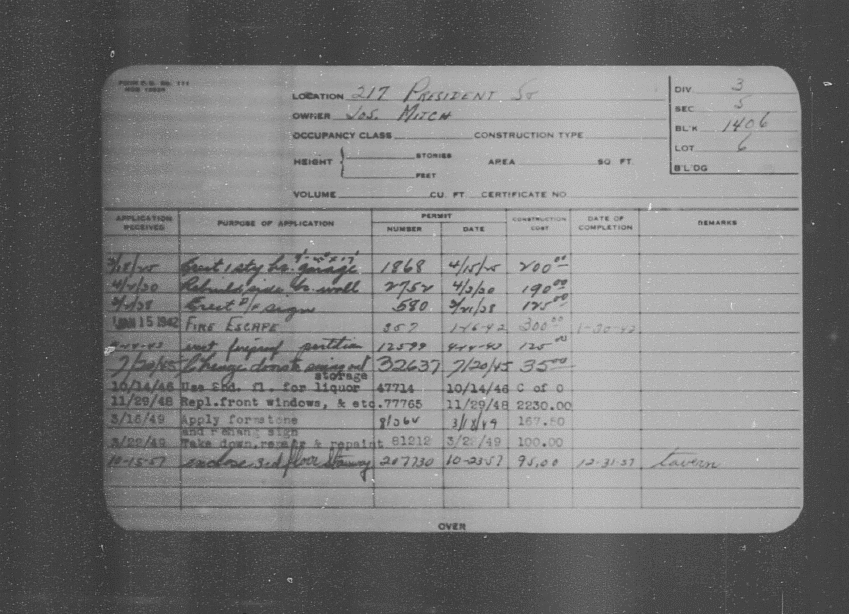 LOCATION 217 PRESIDENT ST
OWNER JOS. MITCH
OCCUPANCY CLASS CONSTRUCTION TYPE
HEIGHT STORIES FEET AREA SQ. FT.
VOLUME CU. FT. CERTIFICATE NO
DIV 3
SEC 5
BL'K 1406
LOT 6
B'L'DG
APPLICATION RECEIVED PURPOSE OF APPLICATION PERMIT NUMBER DATE CONSTRUCTION COST DATE OF COMPLETION REMARKS
Erect 1 sty garage 1868 4/15/25 200.00
4/2/30 Rebuild side wall 2752 4/3/30 190.00
Erect D/F sign 580 125.00
JAN 15 1942 FIRE ESCAPE 357 1-16-42 300.00 1-30-42
fireproof partition 12599 125.00
7/20/45 32637 7/20/45 35.00
storage
10/14/46 Use 2nd. fl. for liquor 47714 10/14/46 C of O
11/29/48 Repl.front windows, & etc. 77765 11/29/48 2230.00
3/16/49 Apply formstone 3/18/49 167.50
and rehang sign
3/22/49 Take down,repair & repaint 81212 3/22/49 100.00
10-15-57 enclose 3rd floor stairway 207730 10-23-57 95.00 12-31-57 tavern
OVER